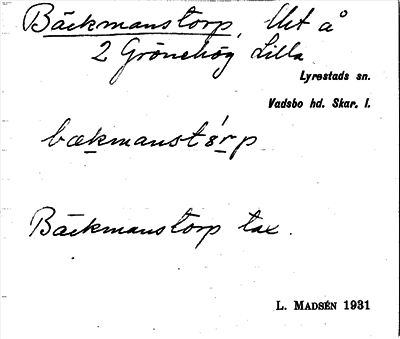 Bäckmanstorp, Uet å
2 Grönehög Lilla
Lyrestads sn.
Vadsbo hd. Skar. l.
bækmanstórp
Bäckmanstorp tax.
L. MADSÉN 1931